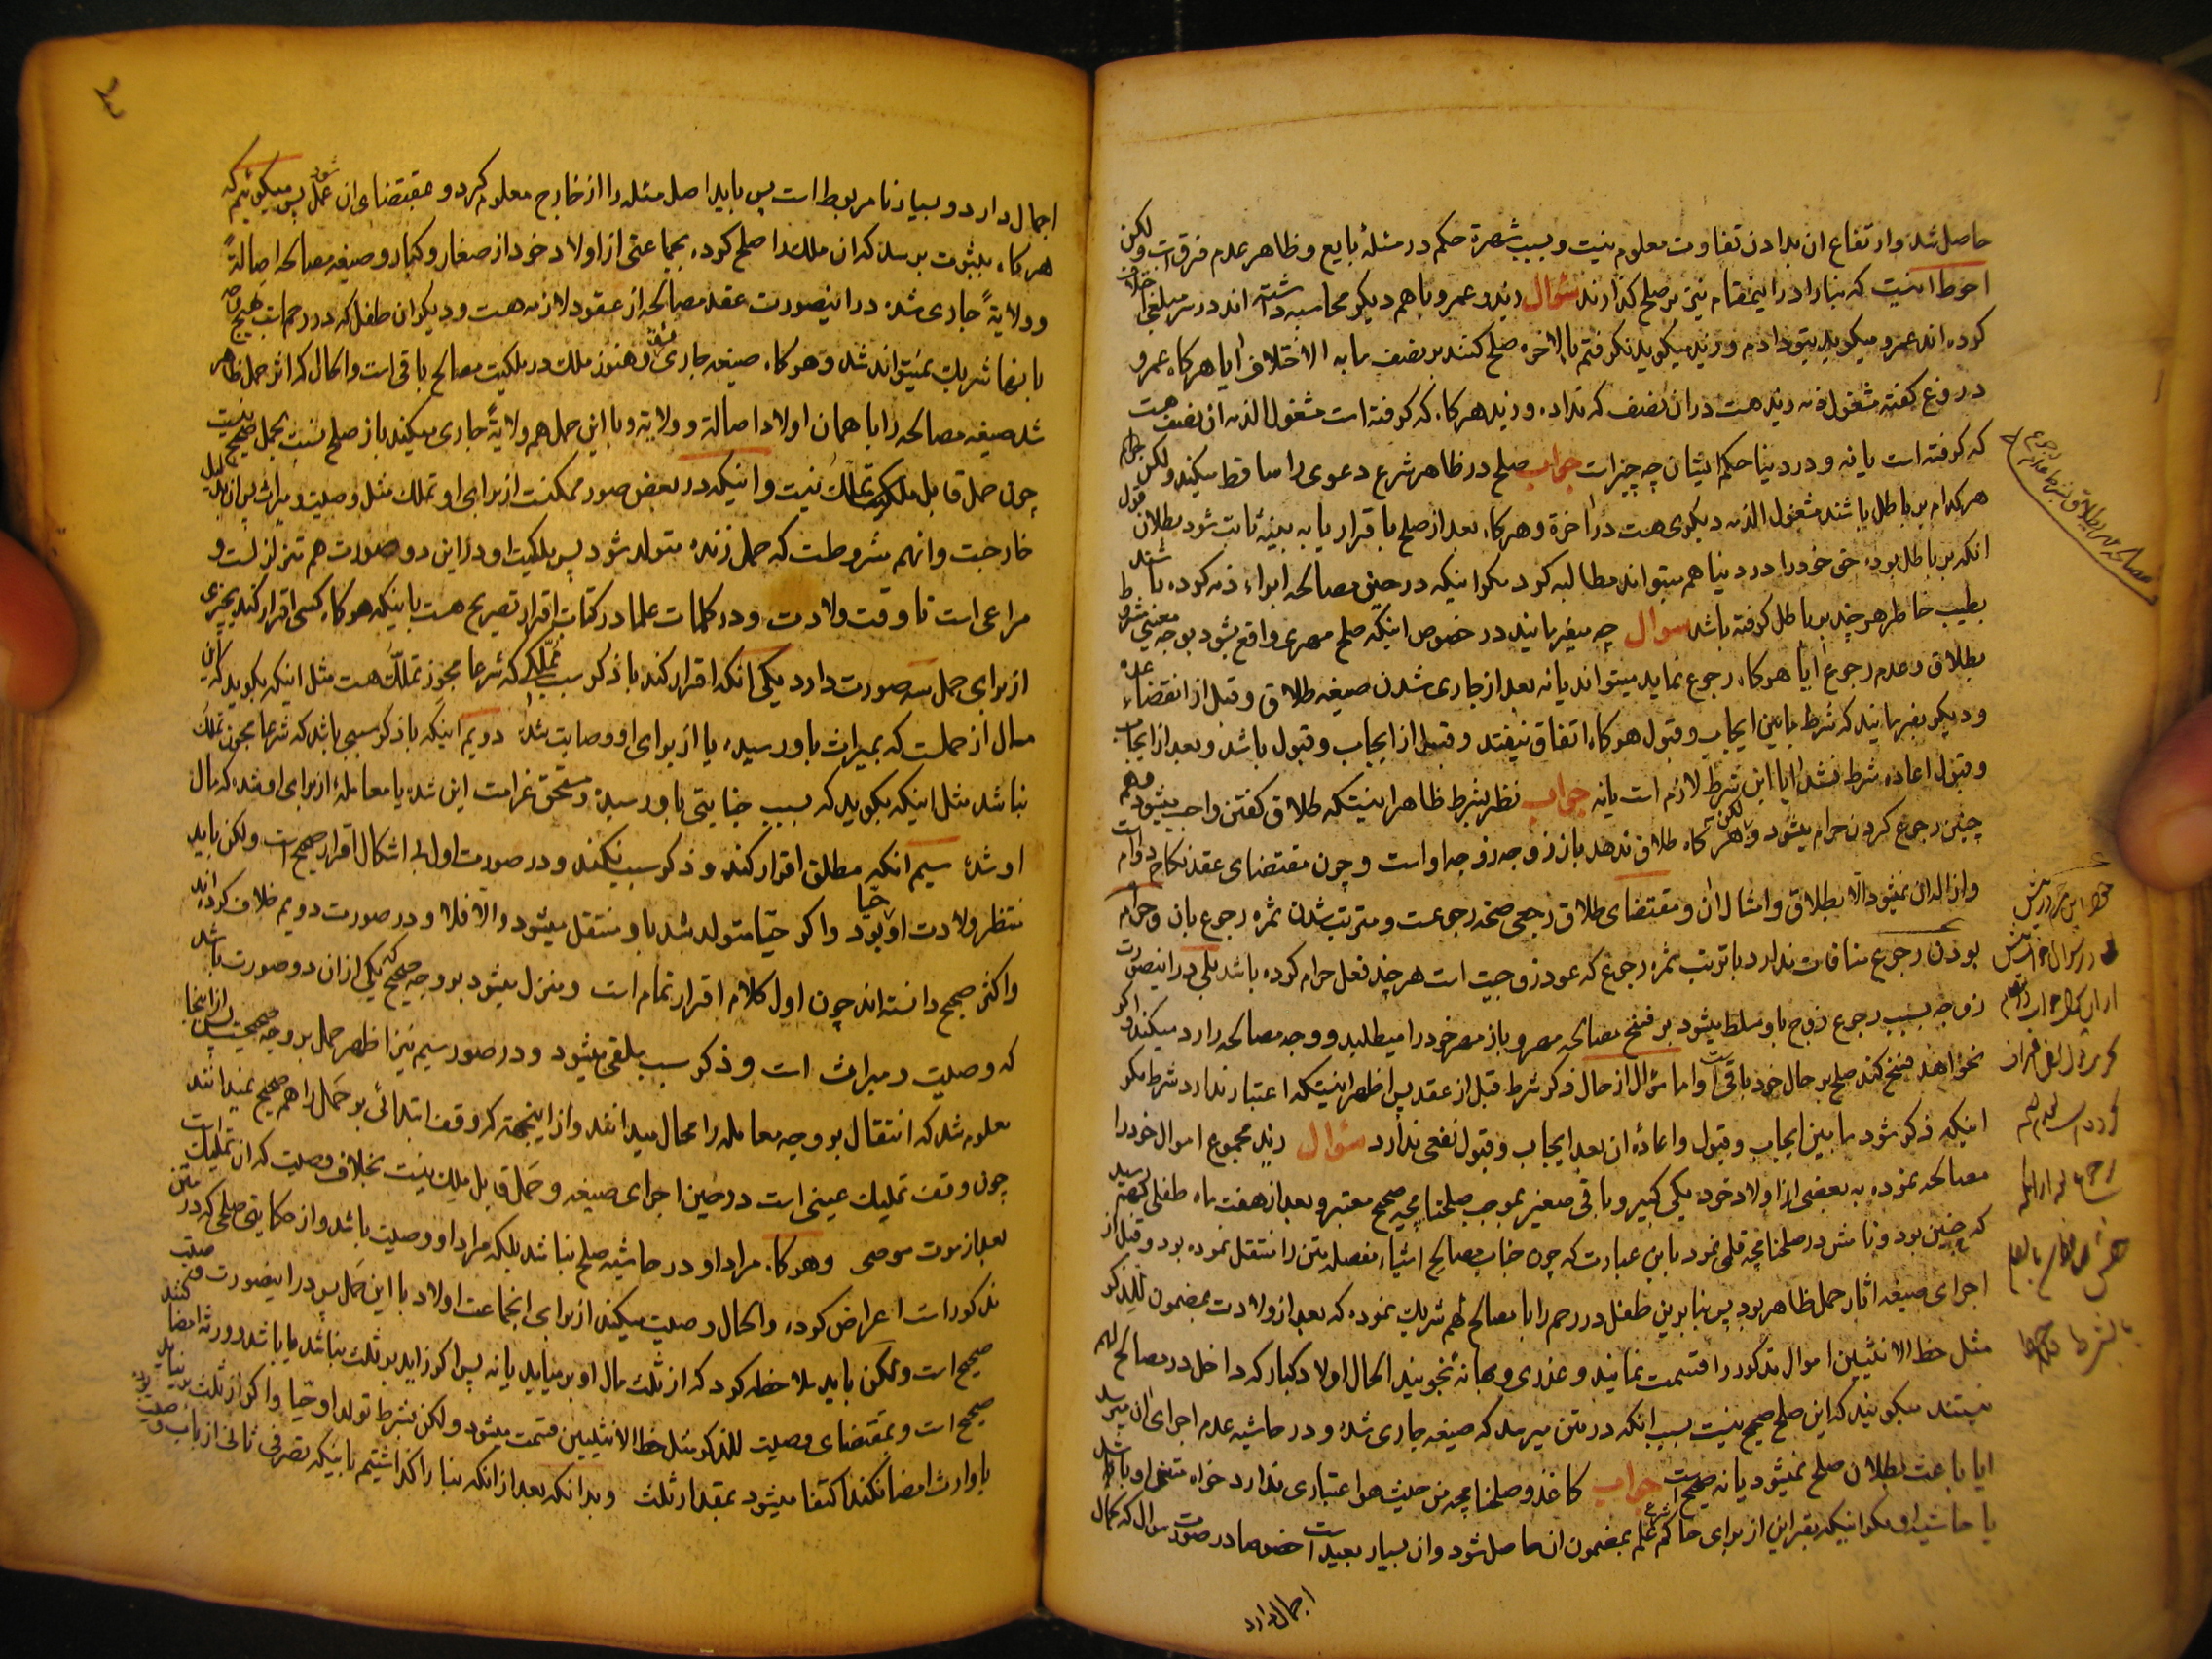 حاصل شد وارتفاع ان بدادن تفاوت معلوم نیست و بسبب شهرة حکم در مسئله بایع و ظاهر عدم فرق است ولکن
احوط اینست که بنا را در اینمقام نیز بر صلح گذارند سؤال زید و عمرو با هم دیگر محاسبه داشته اند در سر مبلغی اختلاف
کرده اند عمرو میگوید بتو دادم و زید میگوید نگرفتم بالاخره صلح کنند بر نصف ما به الاختلاف ایا هرگاه عمرو
دروغ گفته مشغول ذمه زید هست در ان نصف که نداده و زید هرگاه که گرفته است مشغول الذمه ان نصف هست
که گرفته است یا نه و در دنیا حکم ایشان چه چیز است جواب صلح در ظاهر شرع دعوی را ساقط میکند ولکن
هرکدام بر باطل باشند مشغول الذمه دیگری هست در اخرة و هرگاه بعد از صلح باقرار یا به بینه ثابت شود بطلان قول
انکه بر باطل بوده حق خود را در دنیا هم میتواند مطالبه کرد مگر اینکه در حین مصالحه ابراء ذمه کرده باشند
بطیب خاطر هرچند بر باطل گرفته باشد سوال چه میفرمایند در خصوص اینکه صلح مهری واقع بشود بوجه معینی مشروط
بطلاق و عدم رجوع ایا هرگاه رجوع نماید میتواند یا نه بعد از جاری شدن صیغه طلاق و قبل از انقضاء عده
و دیگر بفرمایند که شرط مابین ایجاب و قبول هرگاه اتفاق نیفتد و قبل از ایجاب و قبول باشد و بعد از ایجاب
و قبول اعاده شرط نشد ایا این شرط لازم است یا نه جواب نظر بشرط ظاهر اینستکه طلاق گفتن واجب میشود و هم
چنین رجوع کردن حرام میشود ولکن هرگاه طلاق ندهد باز زوجه زوجه او است و چون مقتضای عقد نکاح دوام است
و ازاله ان نمیشود الا بطلاق و امثال ان و مقتضای طلاق رجعی صحة رجوعست و مترتب شدن ثمره رجوع بان و حرام
بودن رجوع منافات ندارد با ترتب ثمره رجوع که عود زوجیت است هرچند فعل حرام کرده باشد بلی در اینصورت
زوجه بسبب رجوع زوج باو مسلط میشود بر فسخ مصالحه مهر و باز مهر خود را میطلبد و وجه مصالحه را رد میکند و اگر
نخواهد فسخ کند صلح بر حال خود باقی است و اما سؤال از حال ذکر شرط قبل از عقد پس اظهر اینستکه اعتبار ندارد شرط مگر
اینکه ذکر شود مابین ایجاب و قبول و اعاده ان بعد ایجاب و قبول نفعی ندارد سؤال زید مجموع اموال خود را
مصالحه نموده به بعضی از اولاد خود یکی کبیر و باقی صغیر بموجب صلحنامچه صحیح معتبر و بعد از هفت ماه طفلی بهم رسید
که جنین بود و نامش در صلحنامچه قلمی نمود باین عبارت که چون جناب مصالح اشیاء مفصله متن را منتقل نموده بود و قبل از
اجرای صیغه اثار حمل ظاهر بود پس بنابرین طفل در رحم را با مصالح لهم شریک نموده که بعد از ولادت بمضمون للذکر
مثل حظ الانثیین اموال مذکور را قسمت نمایند و عذری و بهانه نجویند الحال اولاد کبار که داخل در مصالح لهم
نیستند میگویند که این صلح صحیح نیست بسبب انکه در متن میرسد که صیغه جاری شده و در حاشیه عدم اجرای ان میرسد
ایا باعث بطلان صلح نمیشود یا نه صحیح است جواب کاغذ و صلحنامچه من حیث هو اعتباری ندارد خواه متنش او باشد
یا حاشیه او مگر اینکه بقراین از برای حاکم شرع علم بمضمون ان حاصل شود و ان بسیار بعید است خصوصا در صورت سوال که کمال
اجمال دارد
اجمال دارد و بسیار نامربوط است پس باید اصل مسئله را از خارج معلوم کرد و بمقتضای ان عمل شود پس میگوئیم که
هرگاه بثبوت برسد که ان ملک را صلح کرده بجماعتی از اولاد خود از صغار و کبار و صیغه مصالحه اصالةً
و ولایةً جاری شده در اینصورت عقد مصالحه از عقود لازمه هست و دیگر ان طفل که در رحم است هیچ وجه
بانها شریک نمیتواند شد و هرگاه صیغه جاری نشده و هنوز ملک در ملکیت مصالح باقی است و الحال که اثر حمل ظاهر
شد صیغه مصالحه را با همان اولاد اصالة و ولایة و با این حمل هم ولایةً جاری میکند باز صلح نسبت بحمل صحیح نیست
چون حمل قابل تملک نیست و اینکه در بعض صور ممکنست از برای او تملک مثل وصیت و میراث پس ان بدلیل
خارجست و انهم مشروطست که حمل زنده متولد شود پس ملکیت او در این دو صورت هم متزلزلست و
مراعی است تا وقت ولادت و در کلمات علما در کتاب اقرار تصریح هست باینکه هرگاه کسی اقرار کند بچیزی
از برای حمل سه صورت دارد یکی انکه اقرار کند با ذکر سبب مملک که شرعا مجوز تملک هست مثل اینکه بگوید که این
مال از حملست که بمیراث باو رسیده یا از برای او وصایت شده دویم اینکه با ذکر سببی باشد که شرعا مجوز تملک
نباشد مثل اینکه بگوید که بسبب جنایتی باو رسیده و مستحق غرامت این شده یا معامله از برای او شده که مال
او شده سیم انکه مطلق اقرار کند و ذکر سبب نکند و در صورت اول بی اشکال اقرار صحیح است ولکن باید
منتظر ولادت او بود و اگر حیّا متولد شد باو منتقل میشود و الا فلا و در صورت دویم خلاف کرده اند
و اکثر صحیح دانسته اند چون اول کلام اقرار تمام است و منزل میشود بر وجه صحیح که یکی از ان دو صورت باشد
که وصیت و میراث است و ذکر سبب ملغی میشود و در صور سیم نیز اظهر حمل بر وجه صحیحست پس از اینجا
معلوم شد که انتقال بر وجه معامله را محال میدانند و از اینجهة که وقف ابتدائی بر حمل را هم صحیح نمیدانند
چون وقف تملیک عینی است در حین اجرای صیغه و حمل قابل ملک نیست بخلاف وصیت که ان تملیک است
بعد از موت موصی و هرگاه مراد او در حاشیه صلح نباشد بلکه مراد او وصیت باشد و از حکایت صلحی که در متن
مذکور است اعراض کرده و الحال وصیت میکند از برای انجماعت اولاد با این حمل پس در اینصورت وصیت
صحیح است ولکن باید ملاحظه کرد که از ثلث مال او بر میاید یا نه پس اگر زاید بر ثلث نباشد یا باشد و ورثه امضا کنند
صحیح است و بمقتضای وصیت للذکر مثل حظ الانثیین قسمت میشود ولکن بشرط تولد او حیّا و اگر از ثلث بر نیاید
یا وارث امضا نکند اکتفا میشود بمقدار ثلث و بدانکه بعد از انکه بنا را گذاشتیم باینکه تصرف ثانی از باب وصیت